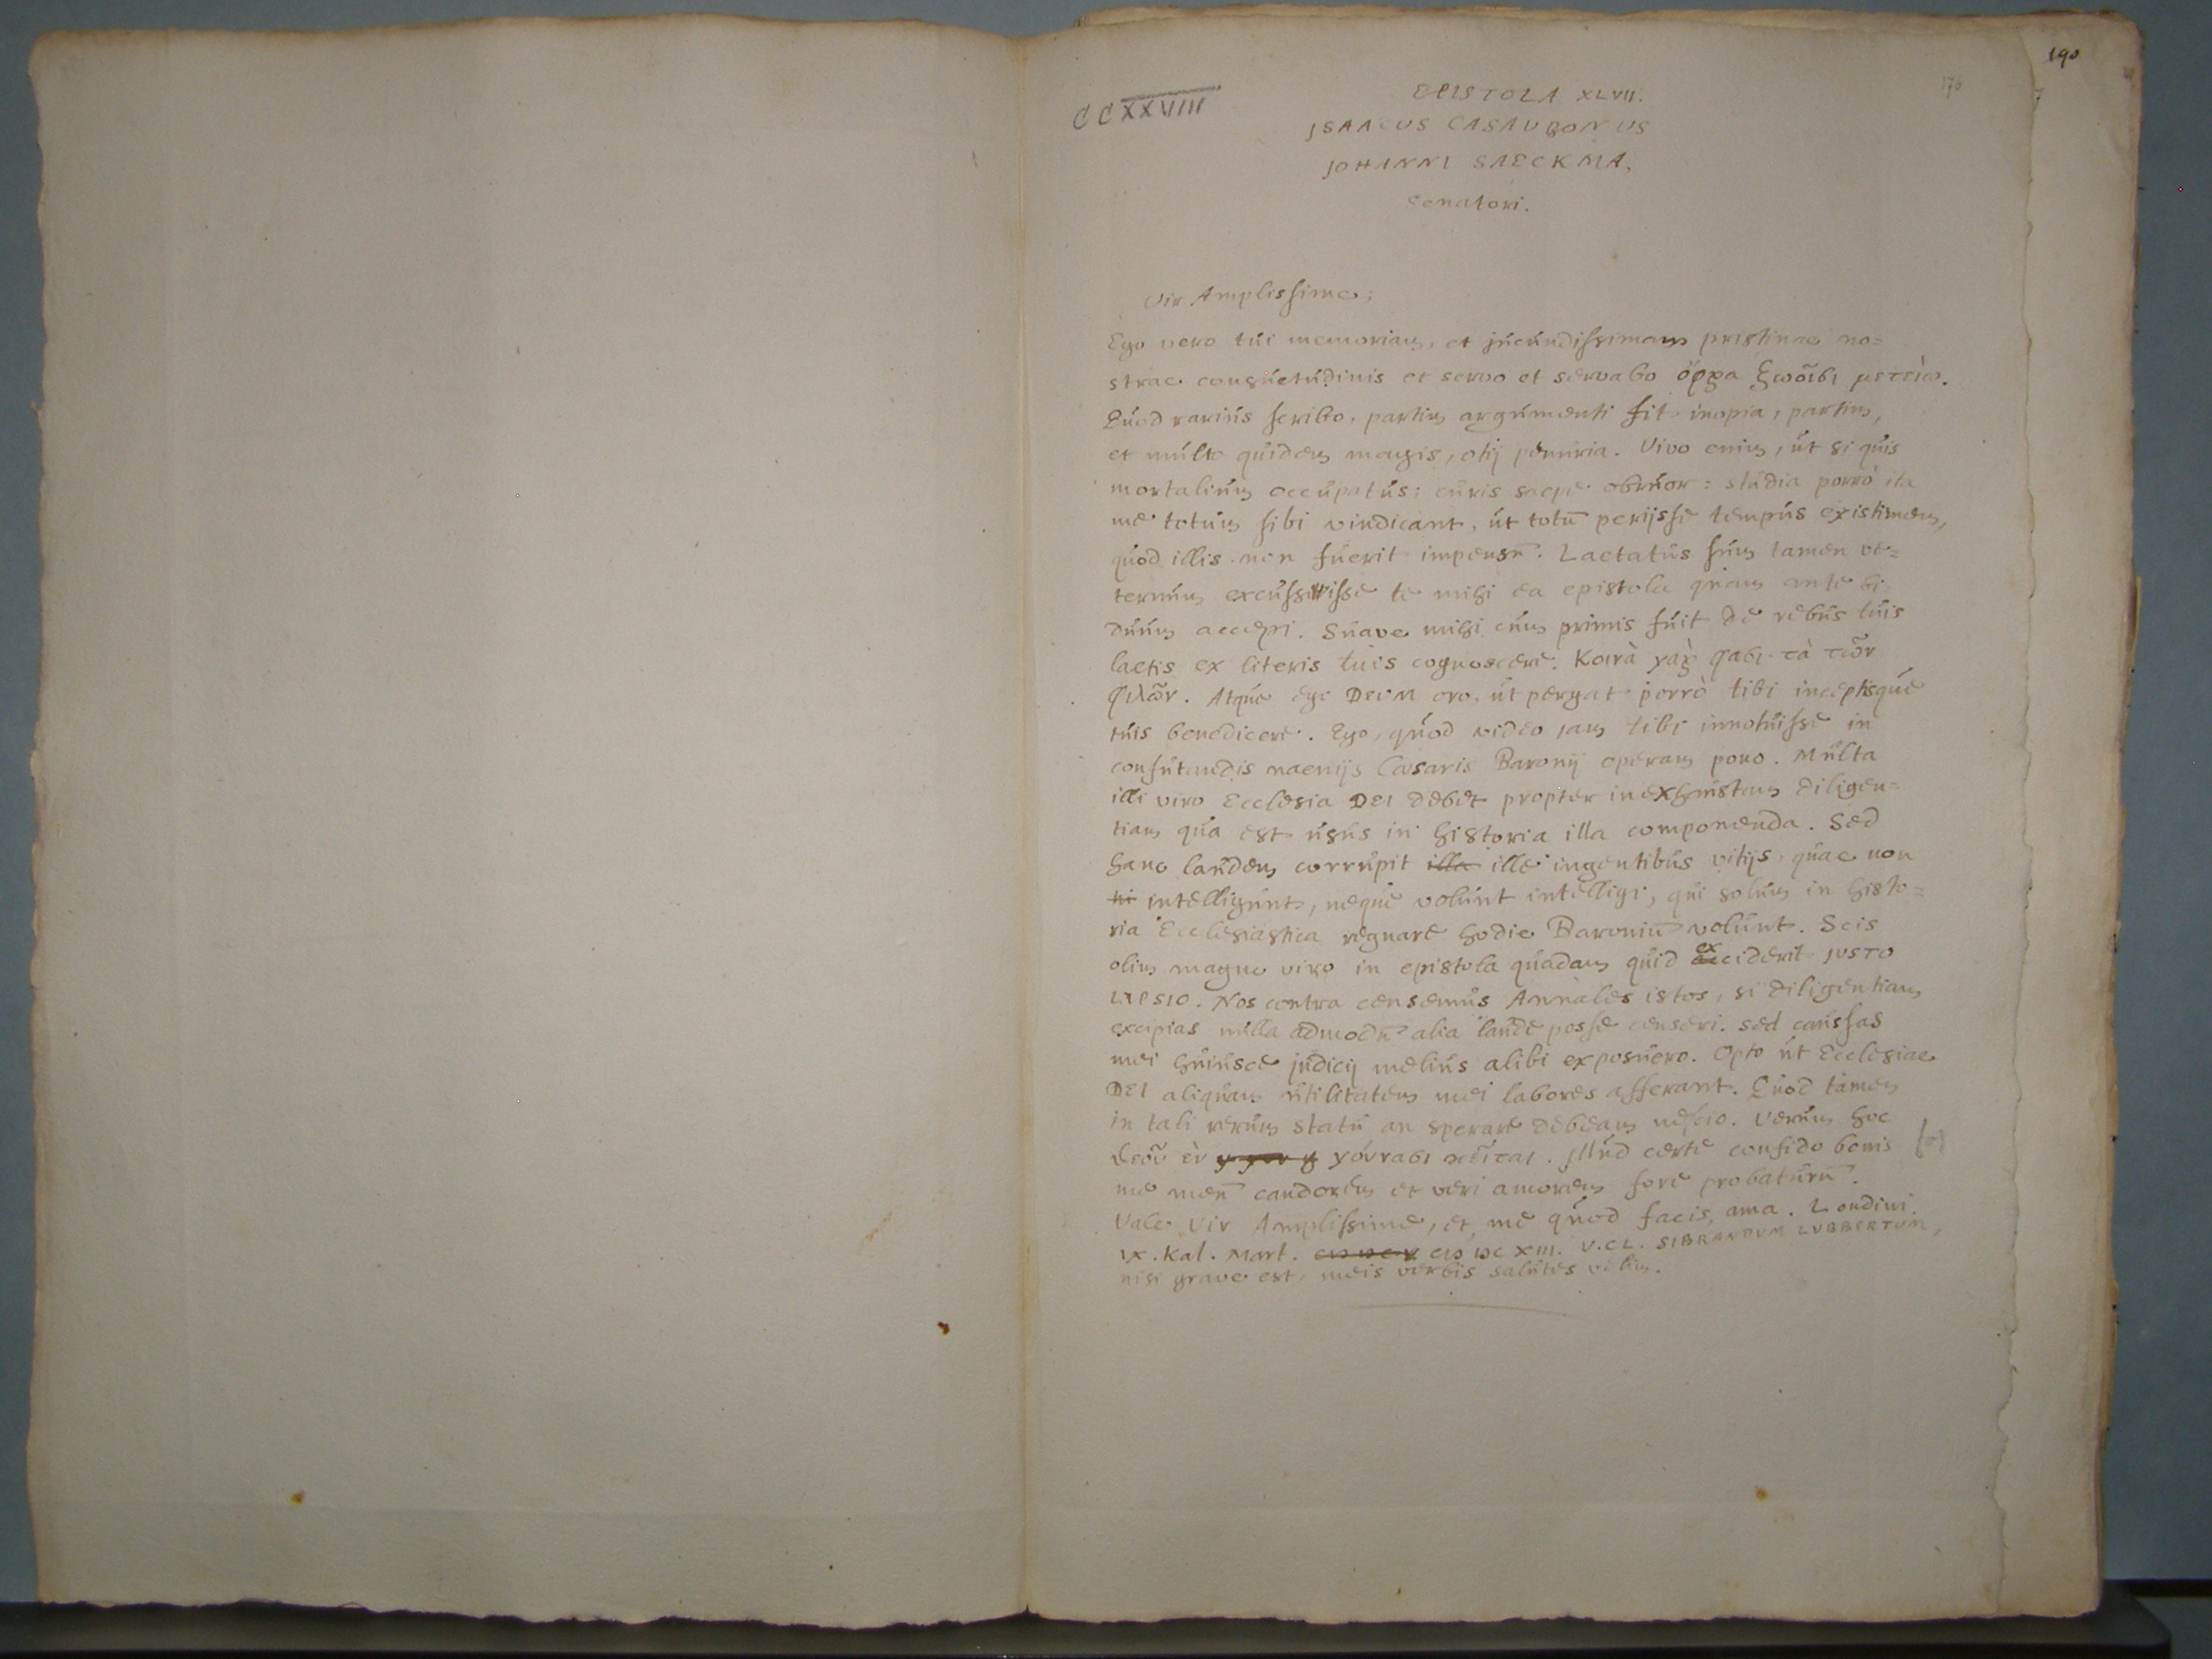 190
176
CCXXVIII
EPISTOLA XLVII.
ISAACUS CASAUBONUS
JOHANNI SAECKMA,
Senatori.
Vir Amplissime;
Ego vero tui memoriam, et jucundissimam pristinae no=
strae consuetudinis et servo et servabo ὄφρα ζωοῖσι μετείω.
Quod rarius scribo, partim argumenti fit inopia, partim,
et multo quidem magis, otij penuria. Vivo enim, ut si quis
mortalium occupatus; curis saepe obruor: studia porrò ita
me totum sibi vindicant, ut totū perijsse tempus existimem,
quod illis non fuerit impensū. Laetatus sum tamen ve=
ternum excussisse te mihi ea epistola quam ante bi
duum accepi. Suave mihi cum primis fuit de rebus tuis
laetis ex literis tuis cognoscere. Κοινὰ γὰρ φασι τὰ τῶν
φιλῶν. Atque ego DEUM oro, ut pergat porrò tibi inceptisque
tuis benedicere. Ego, quod video jam tibi innotuisse in
confutandis naenijs Caesaris Baronij operam pono. Multa
illi viro Ecclesia DEI debet propter inexhaustam diligen=
tiam qua est usus in historia illa componenda. Sed
hanc laudem corrupit illa ille ingentibus vitijs, quae non
ni intelligunt, neque volunt intelligi, qui solum in histo=
ria Ecclesiastica regnare hodie Baroniū volunt. Scis
olim magno viro in epistola quadam quid exciderit JUSTO
LIPSIO. Nos contra censemus Annales istos, si diligentiam
excipias nulla admodū alia laude posse censeri. sed caussas
mei huiusce judicij melius alibi exposuero. Opto ut Ecclesiae
DEI aliquam utilitatem mei labores afferant. Quod tamen
in tali rerum statu an sperare debeam nescio. Verum hoc
θεοῦ ἐν γούνασι κεῖται. Illud certe confido bonis
me meū candorem et veri amorem fore probaturū.
Vale Vir Amplissime, et me quod facis, ama. Londini.
IX. Kal. Mart. CIƆ IƆC XIII. V.CL. SIBRANDUM LUBBERTUM,
nisi grave est, meis verbis salutes velim.